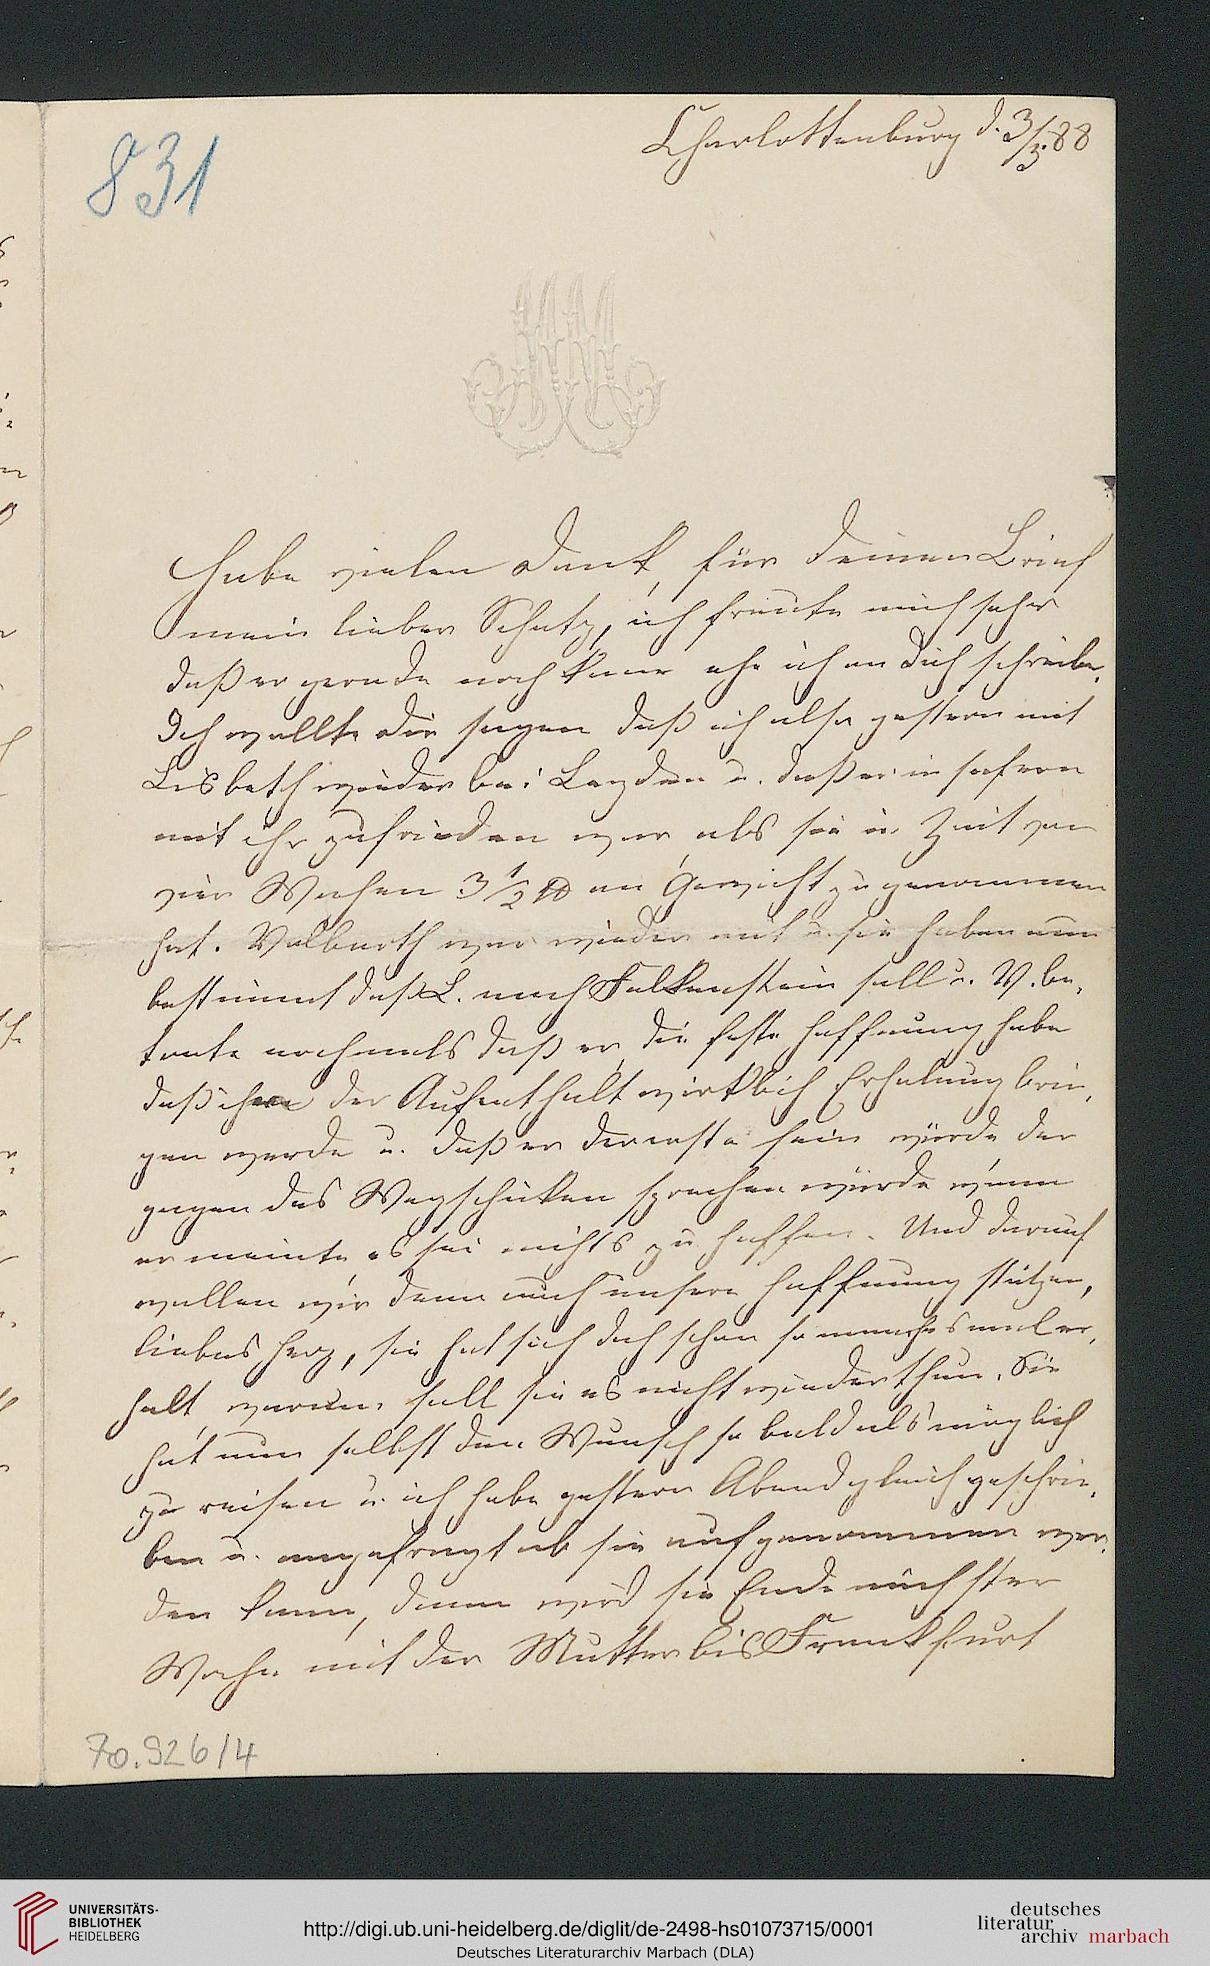 Charlottenburg d. 3/3. 88
831
Habe vielen Dank, für Deinen Brief
mein lieber Schatz, ich freute mich sehr
daß er gerade noch kam ehe ich an Dich schreibe.
Ich wollte Dir sagen daß ich also gestern mit
Lisbeth wieder bei Leyden u. daß er in sofern
mit ihr zufrieden war als sie in Zeit von
vier Wochen 3 1/2 ℔ an Gewicht zugenommen
hat. Valberth war wieder mit u. sie haben nun
bestimmt daß L. nach Falkenstein soll u. V. be-
tonte nochmals daß er die feste Hoffnung habe
daß ihr der Aufenthalt wirklich Erholung brin-
gen werde u. daß er der erste sein würde der
gegen das Wegschicken sprechen würde wenn
er meinte es sei nichts zu hoffen. Und darauf
wollen wir denn auch unsere Hoffnung stützen,
liebes Herz, sie hat sich doch schon so manchesmal er-
holt warum soll sie es nicht wieder thun. Sie
hat nun selbst den Wunsch so bald als möglich
zu reisen u. ich habe gestern Abend gleich geschrie-
ben u. angefragt ob sie aufgenommen wer-
den kann, dann wird sie Ende nächster
Woche mit der Mutter bis Frankfurt
70.926/4
UNIVERSITÄTS-
BIBLIOTHEK
HEIDELBERG
http://digi.ub.uni-heidelberg.de/diglit/de-2498-hs01073715/0001
Deutsches Literaturarchiv Marbach (DLA)
deutsches
literatur
archiv marbach